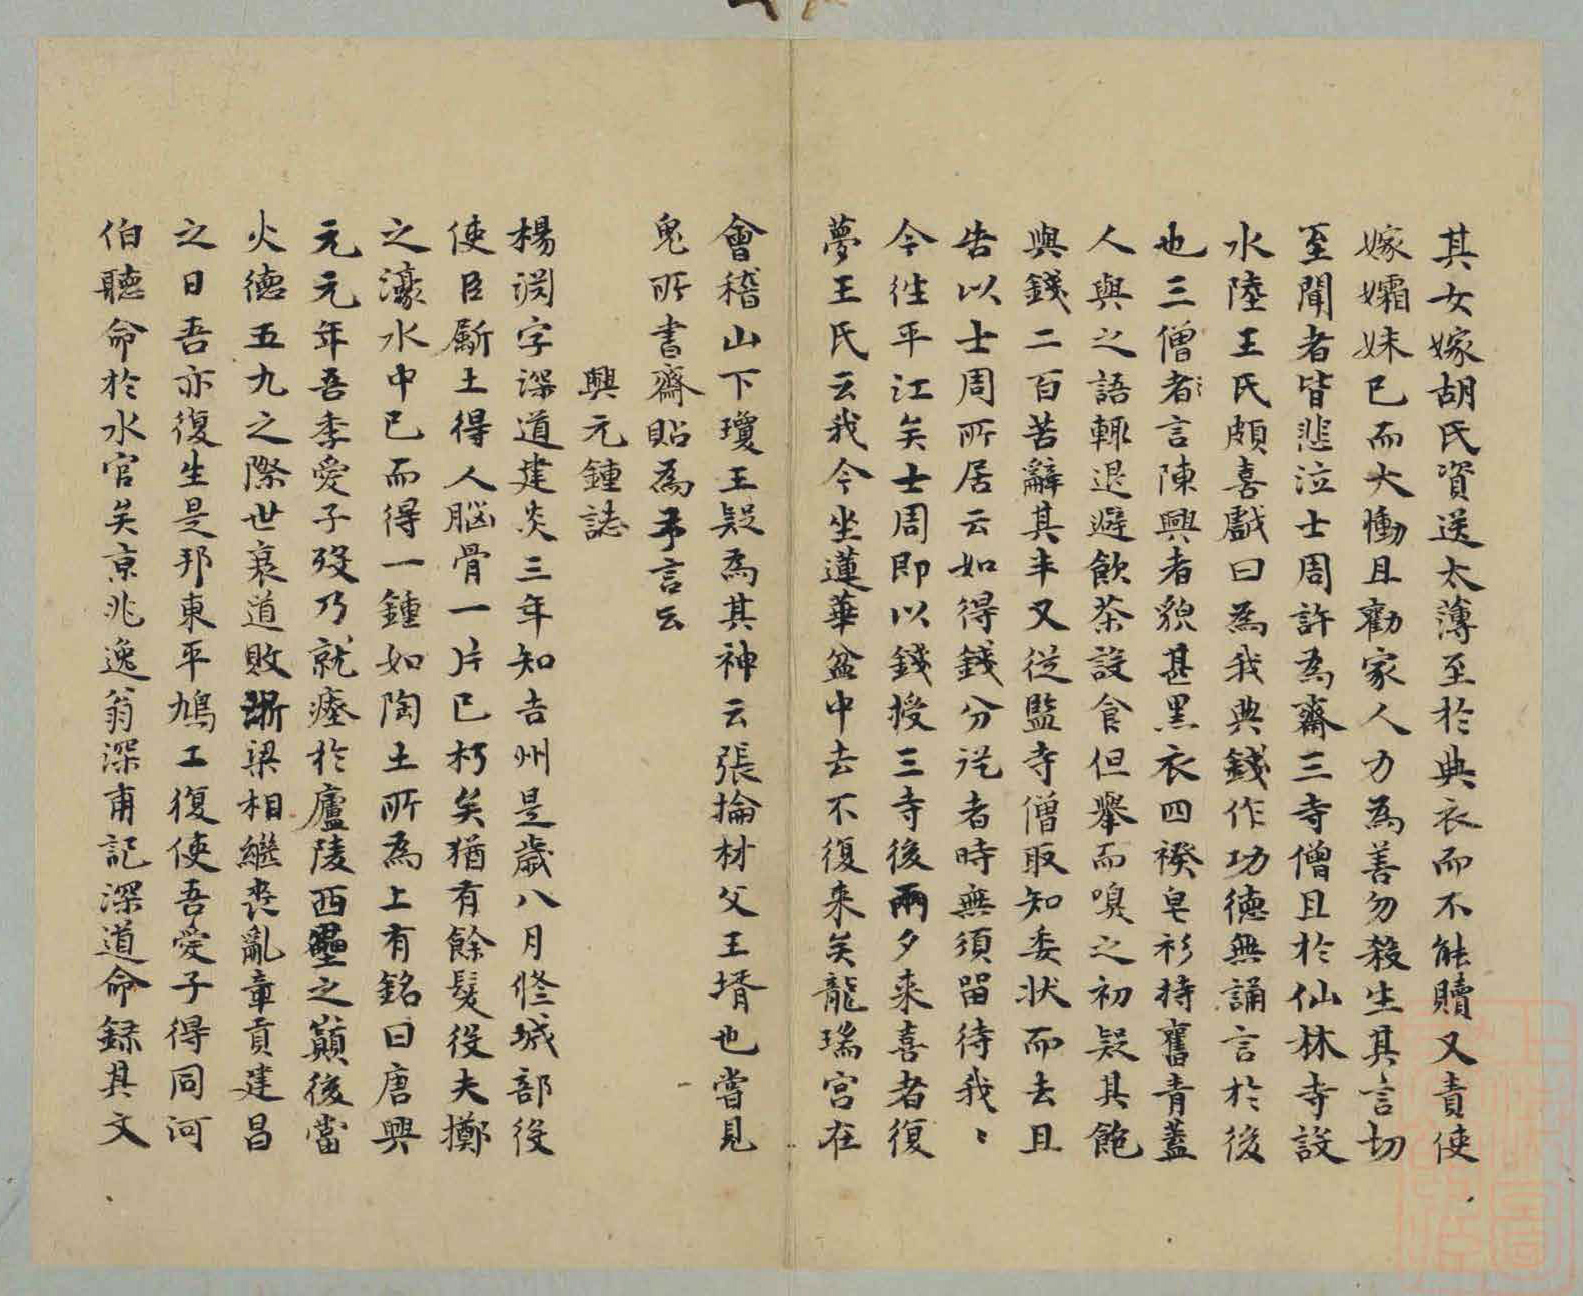 其女嫁胡氏資送太薄至於典衣而不能贖又責使
嫁孀妹已而大慟且勸家人力為善勿殺生其言切
至聞者皆悲泣士周許為齋三寺僧且於仙林寺設
水陸王氏頗喜戲曰為我典錢作功德無誦言於後
也三僧者言陳興者貌甚黑衣四䙆皂衫持舊青蓋
人與之語輒退避飲茶設食但舉而嗅之初疑其飽
與錢二百苦辭其半又從監寺僧取知委狀而去且
告以士周所居云如得錢分訖者時無須留待我〻
今往平江矣士周即以錢授三寺後兩夕來喜者復
夢王氏云我今坐蓮華盆中去不復来矣龍瑞宮在
會稽山下瓊王疑為其神云張掄材父王壻也嘗見
鬼所書齋貼為予言云
興元鍾誌
楊渕字深道建炎三年知吉州是歲八月修城部役
使臣斸土得人腦骨一片已朽矣猶有餘髮役夫擲
之濠水中已而得一鍾如陶土所為上有銘曰唐興
元元年吾季愛子歿乃就瘞於廬陵西壘之巔後當
火德五九之際世衰道敗浙梁相繼喪亂章貢建昌
之日吾亦復生是邦東平鳩工復使吾愛子得同河
伯聽命於水官矣京兆逸翁深甫記深道命録其文